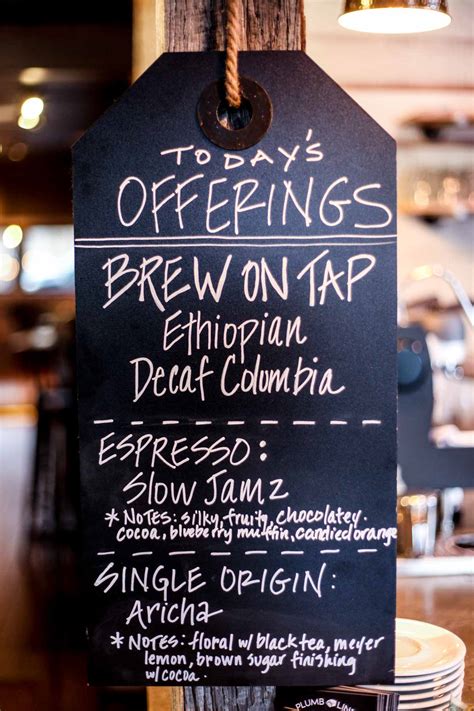 TODAY'S
OFFERINGS
BREW ON TAP
Ethiopian
Decaf Columbia
ESPRESSO:
Slow Jamz
*NOTES: silky, fruity, chocolatey
cocoa, blueberry muffin, candied orange
SINGLE ORIGIN:
Aricha
*NOTES: floral w/ black tea, meyer
lemon, brown sugar finishing
w/ cocoa.
PLUMB LINE